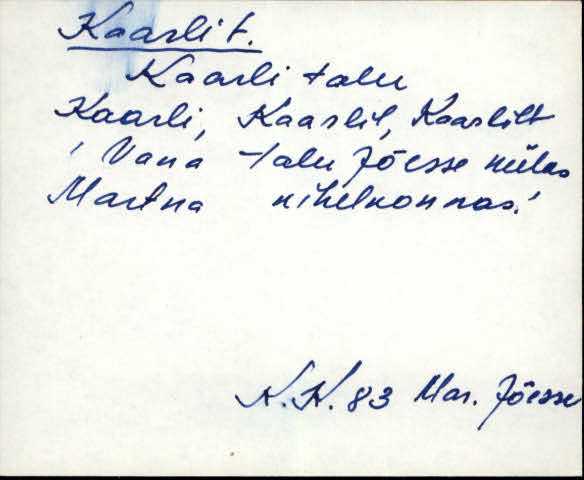 Kaarli t.
Kaarli talu
Kaarli, Kaarlil, Kaarlilt
' Vana talu Jõesse külas
Martna kihelkonnas.'
K.K. 83 Mar. Jõesse